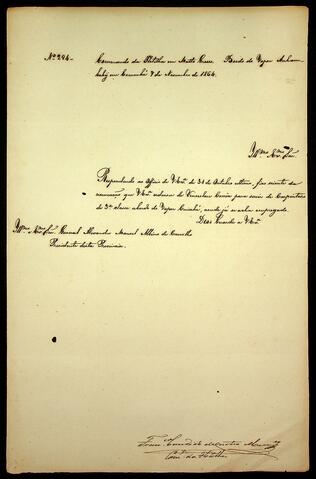 Nº 294.. Commando da Flotilha em Matto Grosso Bordo do Vapor Anham-
bahy em Corumbá 7 de Novembro de 1864.
Illmo. Exmo. Snr.
Respondendo ao Officio de VExa. de 31 de Outubro ultimo, fico sciente da
que VExa. ordenou de Venceslau Corrêa para servir de Carpinteiro
de 3ª classe abordo do Vapor Cuiabá, onde já se acha empregado.
Deos Guarde a VExa.
Illmo. Exmo. Snr. General Alexandre Manoel Albino de Carvalho
Presidente desta Provincia.
Franco. Candido de Castro Menezes
Come. da Flotilha